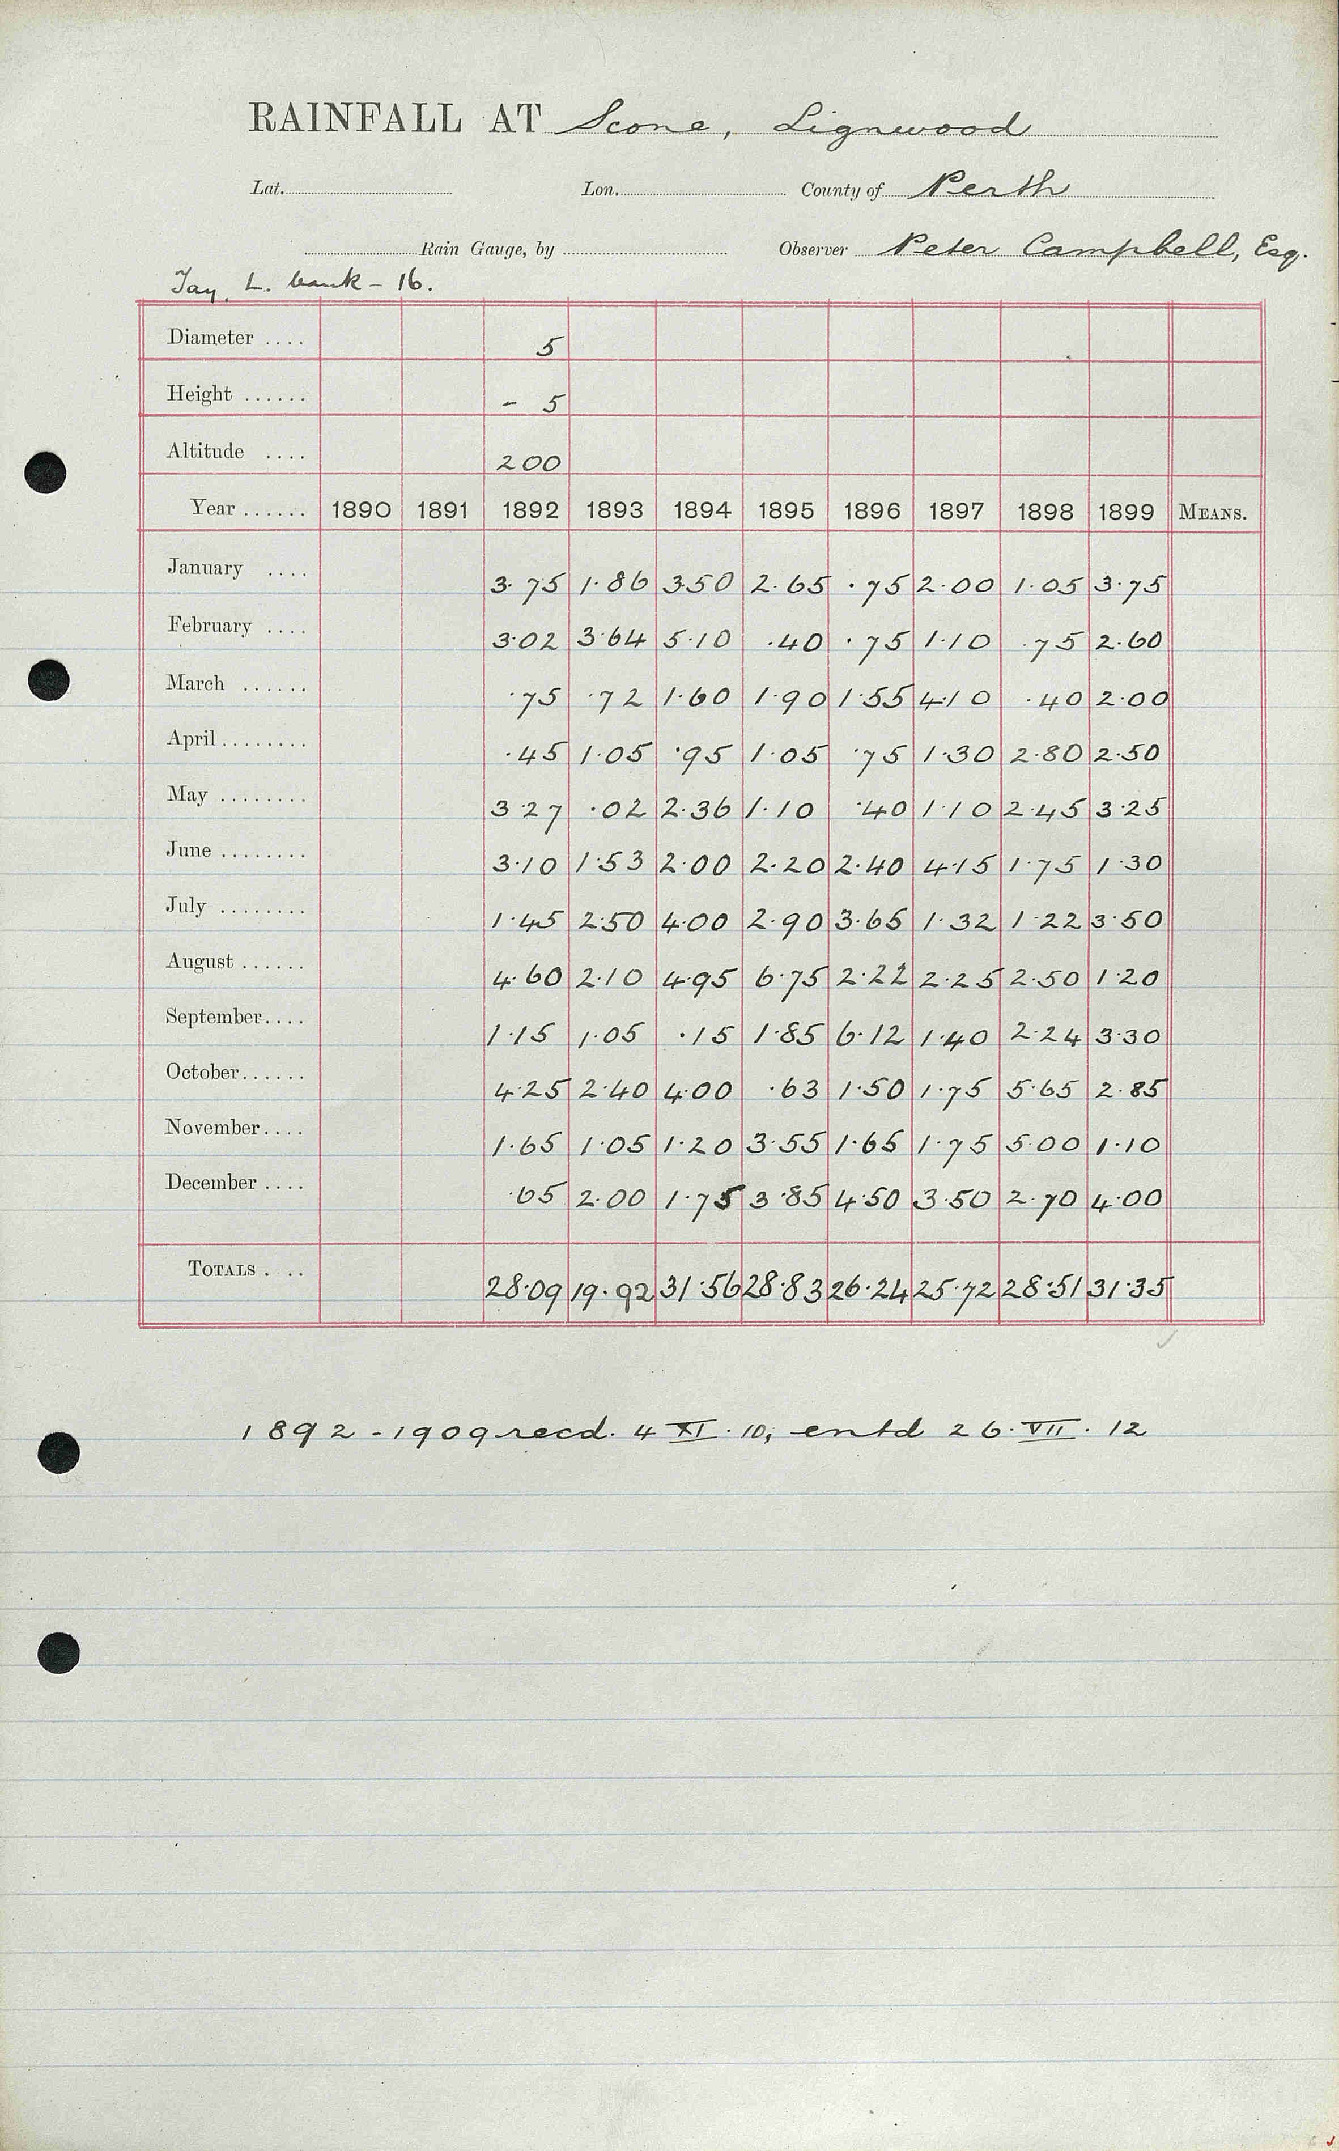 RAINFALL AT Scone, Lignwood
Lat. Lon. County of Perth
Rain Gauge, by Observer Peter Campbell, Esq.
Tay, L. bank - 16.
Diameter .... 5
Height ...... - 5
Altitude .... 200
Year ...... 1890 1891 1892 1893 1894 1895 1896 1897 1898 1899 MEANS.
January .... 3.75 1.86 3.50 2.65 .75 2.00 1.05 3.75
February .... 3.02 3.64 5.10 .40 .75 1.10 .75 2.60
March ...... .75 .72 1.60 1.90 1.55 4.10 .40 2.00
April ........ .45 1.05 .95 1.05 .75 1.30 2.80 2.50
May ........ 3.27 .02 2.36 1.10 .40 1.10 2.45 3.25
June ........ 3.10 1.53 2.00 2.20 2.40 4.15 1.75 1.30
July ........ 1.45 2.50 4.00 2.90 3.65 1.32 1.22 3.50
August ...... 4.60 2.10 4.95 6.75 2.22 2.25 2.50 1.20
September.... 1.15 1.05 .15 1.85 6.12 1.40 2.24 3.30
October...... 4.25 2.40 4.00 .63 1.50 1.75 5.65 2.85
November.... 1.65 1.05 1.20 3.55 1.65 1.75 5.00 1.10
December .... .65 2.00 1.75 3.85 4.50 3.50 2.70 4.00
TOTALS . .. 28.09 19.92 31.56 28.83 26.24 25.72 28.51 31.35
1892 - 1909 recd. 4 XI. 10; entd 26. VII. 12